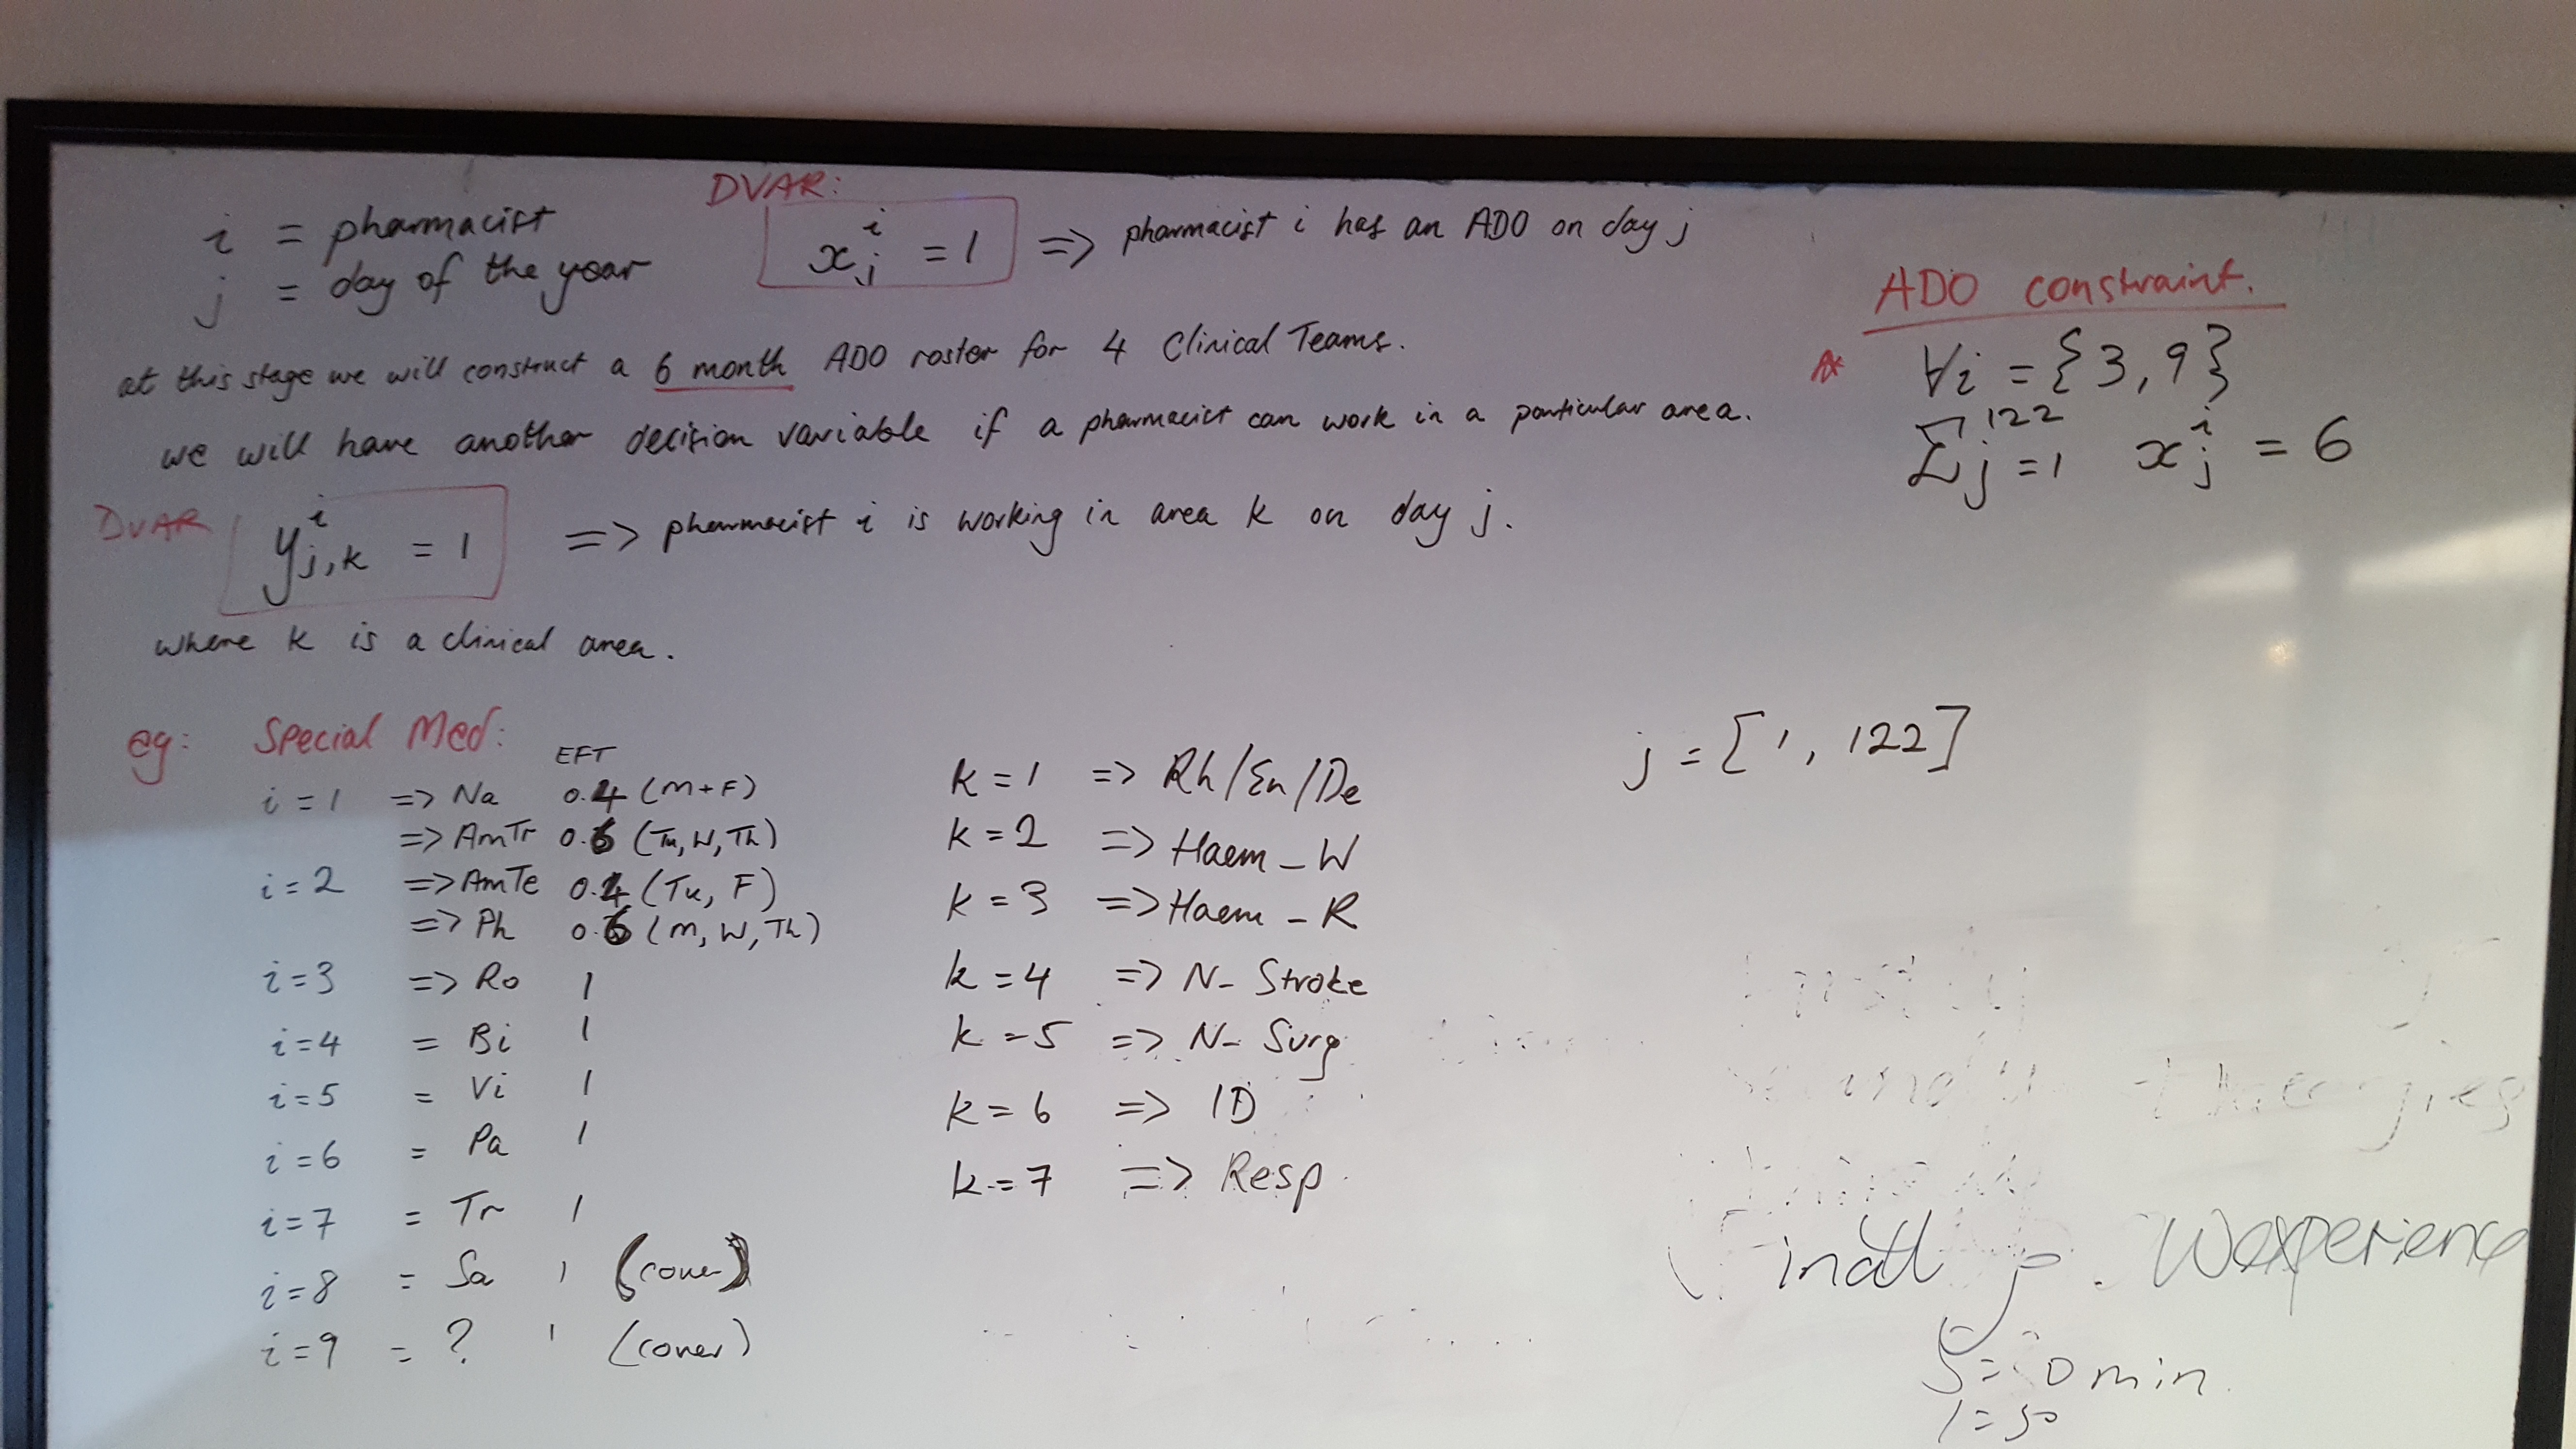 DVAR:
i = pharmacist
j = day of the year
x_j^i = 1 => pharmacist i has an ADO on day j
at this stage we will construct a 6 month ADO roster for 4 Clinical Teams.
we will have another decision variable if a pharmacist can work in a particular area.
DVAR y_{j,k}^i = 1 => pharmacist i is working in area k on day j.
where k is a clinical area.
ADO constraint.
* ∀i = {3,9}
∑_{j=1}^{122} x_j^i = 6
eg: Special Med:
EFT
i = 1 => Na 0.4 (M+F)
=> AmTr 0.6 (Tu, W, Th)
i = 2 => AmTe 0.4 (Tu, F)
=> Ph 0.6 (M, W, Th)
i = 3 => Ro 1
i = 4 = Bi 1
i = 5 = Vi 1
i = 6 = Pa 1
i = 7 = Tr 1
i = 8 = Sa 1 (cover)
i = 9 = ? 1 (cover)
k = 1 => Rh/En/De
k = 2 => Haem_W
k = 3 => Haem_R
k = 4 => N- Stroke
k = 5 => N- Surg
k = 6 => ID
k = 7 => Resp
j = [1, 122]
Wexperience
5 = 0 min
1 = 50